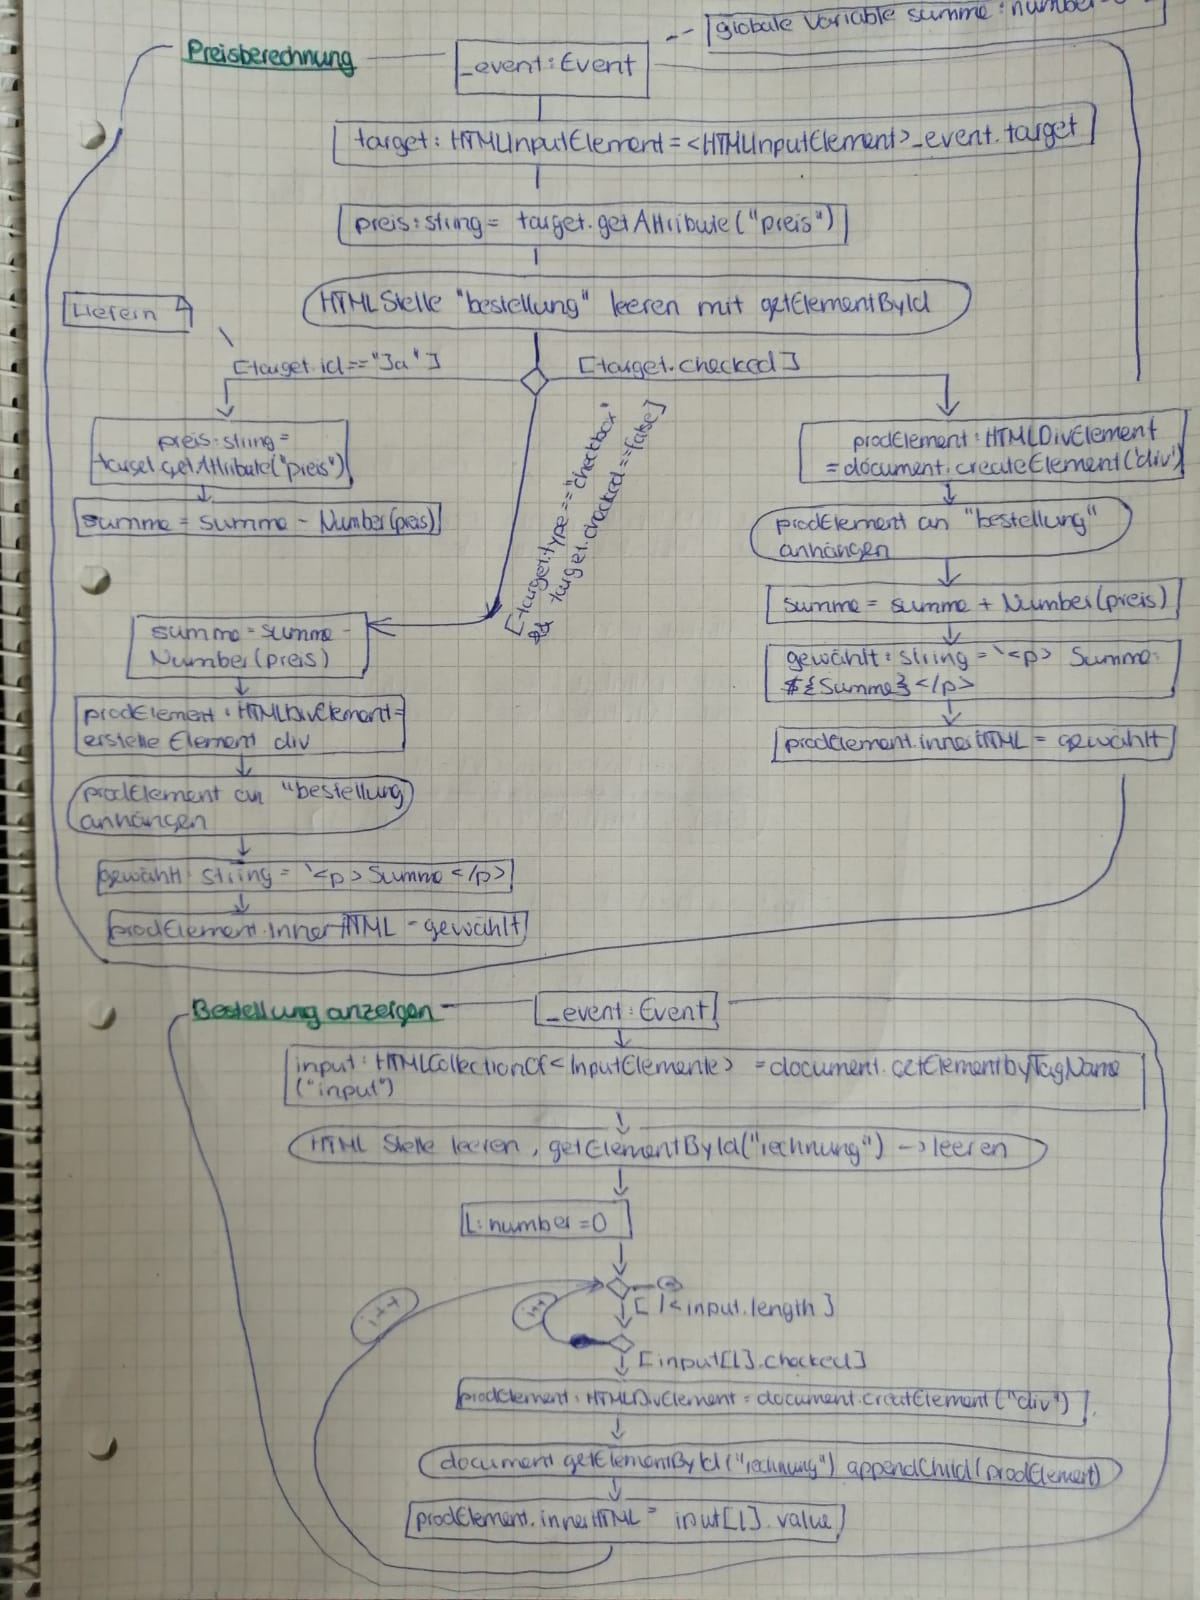 globale Variable summe : number
Preisberechnung
_event : Event
target : HTMLInputElement = <HTMLInputElement> _event.target
preis : string = target.getAttribute("preis")
HTML Stelle "bestellung" leeren mit getElementById
Liefern
[target.id == "Ja"]
[target.checked]
[target.type == "checkbox"
&& target.checked == false]
preis : string =
target.getAttribute("preis")
summe = summe - Number(preis)
prodElement : HTMLDivElement
= document.createElement('div')
prodElement an "bestellung"
anhängen
summe = summe + Number(preis)
gewählt : string = `<p> Summe:
${Summe} </p>
prodElement.innerHTML = gewählt
summe = summe -
Number(preis)
prodElement : HTMLDivElement =
erstelle Element div
prodElement an "bestellung
anhängen
gewählt string = `<p> Summe </p>
prodElement.innerHTML = gewählt
Bestellung anzeigen
_event : Event
input : HTMLCollectionOf <InputElemente> = document.getElementbyTagName
("input")
HTML Stelle leeren, getElementById("rechnung") -> leeren
L : number = 0
[ l < input.length ]
[input[l].checked]
prodElement : HTMLDivElement = document.creatElement("div")
document getElementById("rechnung").appendChild(prodElement)
prodElement.innerHTML = input[l].value